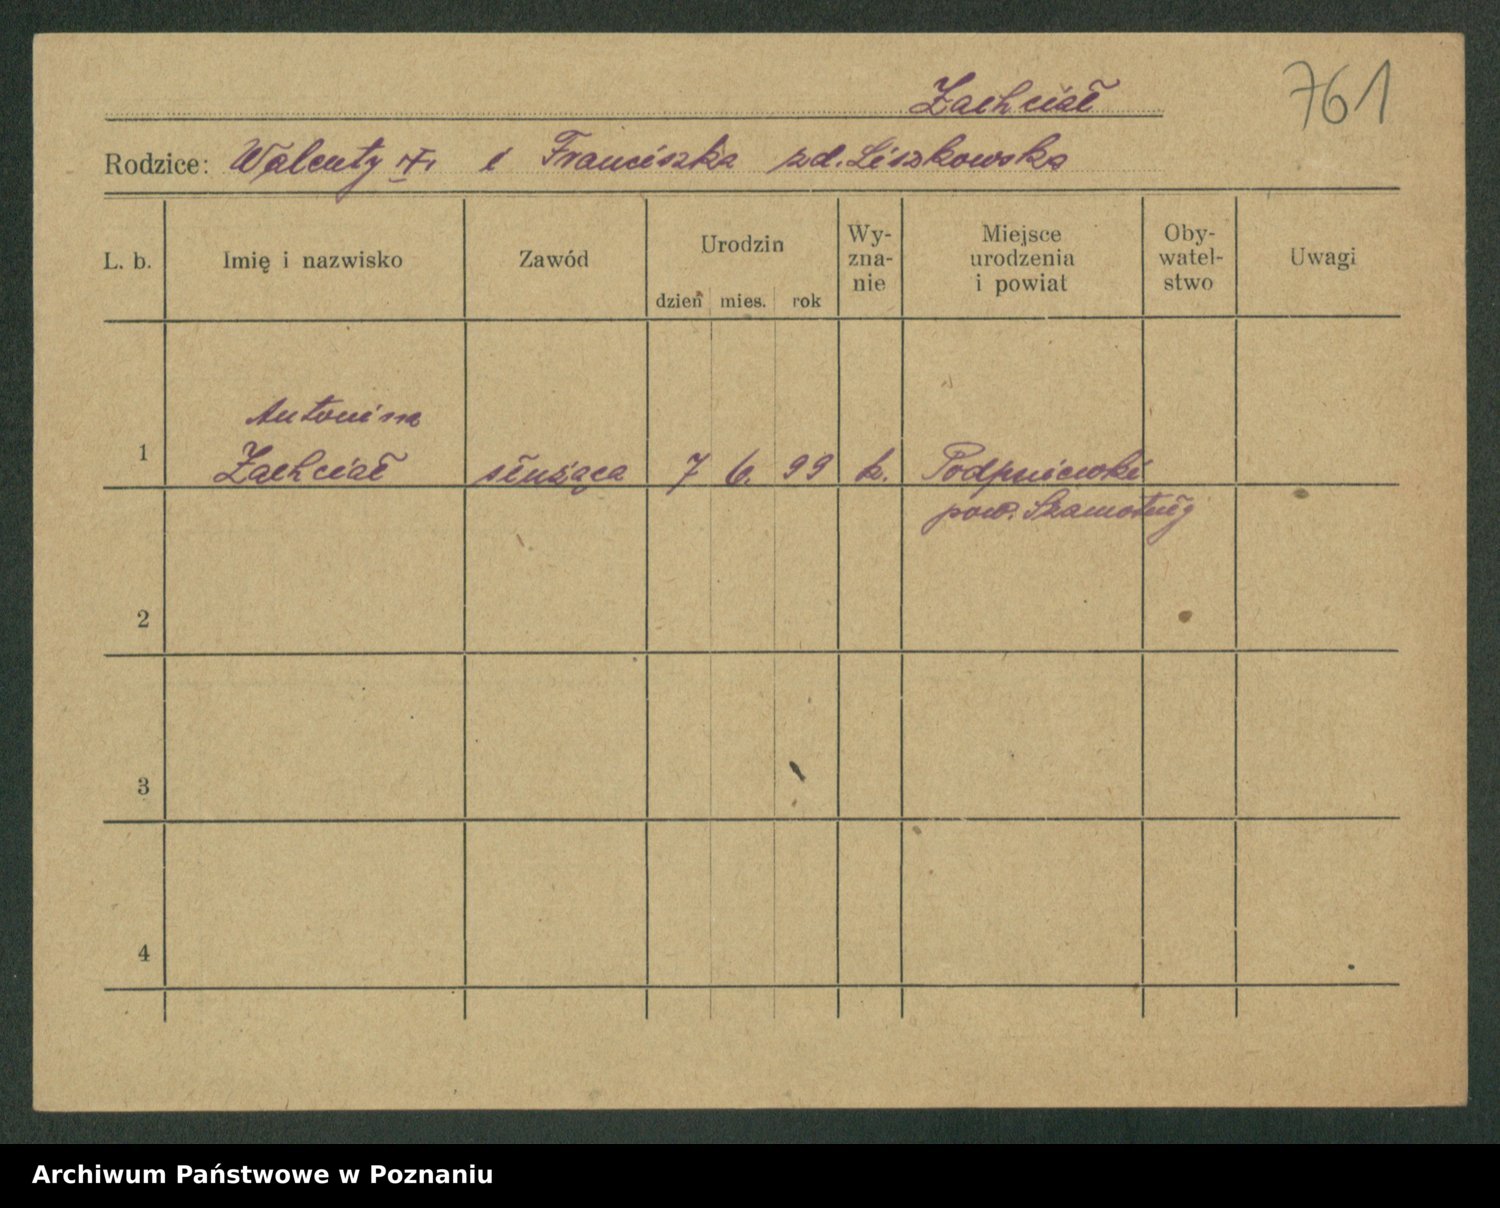 761
Zachciał
Rodzice: Walenty i Franciszka zd. Liszkowska
L. b.
Imię i nazwisko
Zawód
Urodzin
dzień mies. rok
Wy-
zna-
nie
Miejsce
urodzenia
i powiat
Oby-
watel-
stwo
Uwagi
Antonina
1 Zachciał służąca 7 6. 99 k. Podpniewki
pow. Szamotuły
2
3
4
Archiwum Państwowe w Poznaniu